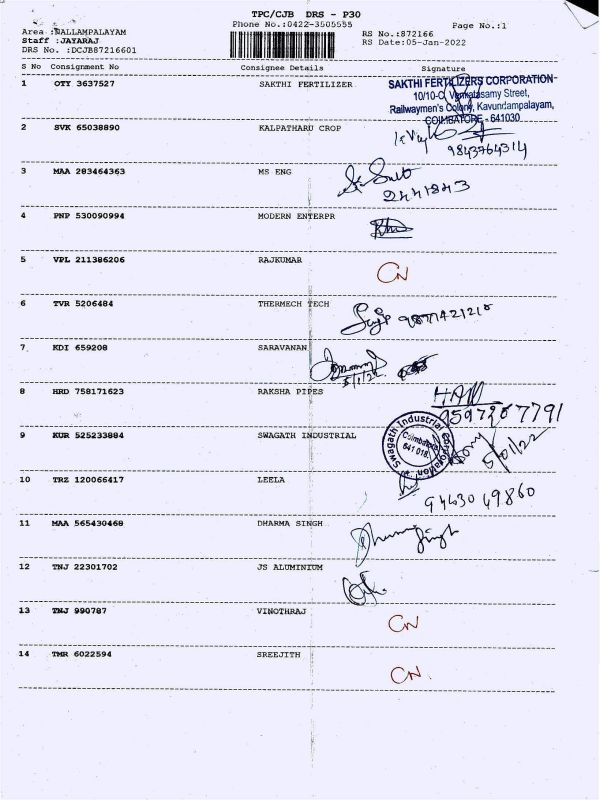 TPC/CJB DRS - P30
Phone No.:0422-3505555
Page No.:1
Area :NALLAMPALAYAM
Staff :JAYARAJ
DRS No. :DCJB87216601
RS No.:872166
RS Date:05-Jan-2022
S No Consignment No Consignee Details Signature
1 OTY 3637527 SAKTHI FERTILIZER
SAKTHI FERTILIZERS CORPORATION
10/10-C, Venkatasamy Street,
Railwaymen's Colony, Kavundampalayam,
COIMBATORE - 641030
2 SVK 65038890 KALPATHARU CROP
9843764314
3 MAA 283464363 MS ENG
2441843
4 PNP 530090994 MODERN ENTERPR
5 VPL 211386206 RAJKUMAR CN
6 TVR 5206484 THERMECH TECH
7 KDI 659208 SARAVANAN
5/1/22
8 HRD 758171623 RAKSHA PIPES
9597207791
9 KUR 525233884 SWAGATH INDUSTRIAL
Swagath Industrial Corporation
Coimbatore
641 018.
5/01/22
10 TRZ 120066417 LEELA
9443049860
11 MAA 565430468 DHARMA SINGH
12 TNJ 22301702 JS ALUMINIUM
13 TNJ 990787 VINOTHRAJ CN
14 TMR 6022594 SREEJITH CN.